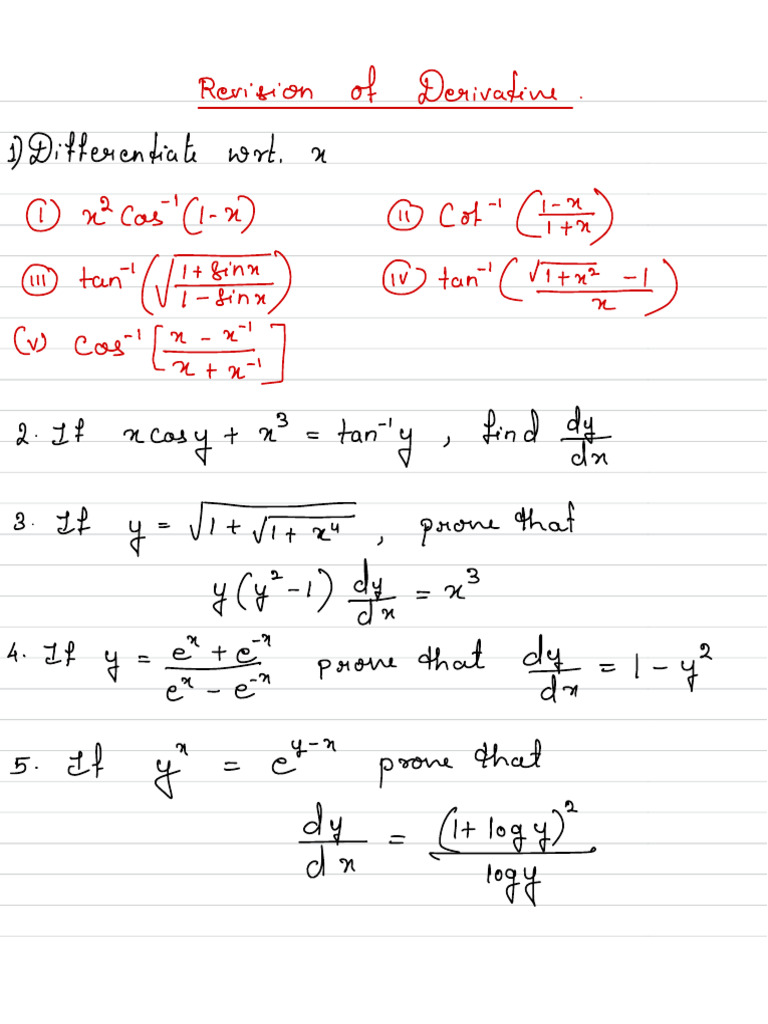 Revision of Derivative.
1) Differentiate wrt. x
(i) x² Cos⁻¹(1-x) (ii) Cot⁻¹((1-x)/(1+x))
(iii) tan⁻¹(√((1+sinx)/(1-sinx))) (iv) tan⁻¹((√(1+x²) -1)/x)
(v) Cos⁻¹[(x - x⁻¹)/(x + x⁻¹)]
2. If xcosy + x³ = tan⁻¹y, find dy/dx
3. If y = √(1+√(1+x⁴)), prove that
y(y²-1) dy/dx = x³
4. If y = (eˣ + e⁻ˣ)/(eˣ - e⁻ˣ) prove that dy/dx = 1-y²
5. If yˣ = e^(y-x) prove that
dy/dx = (1+logy)²/logy